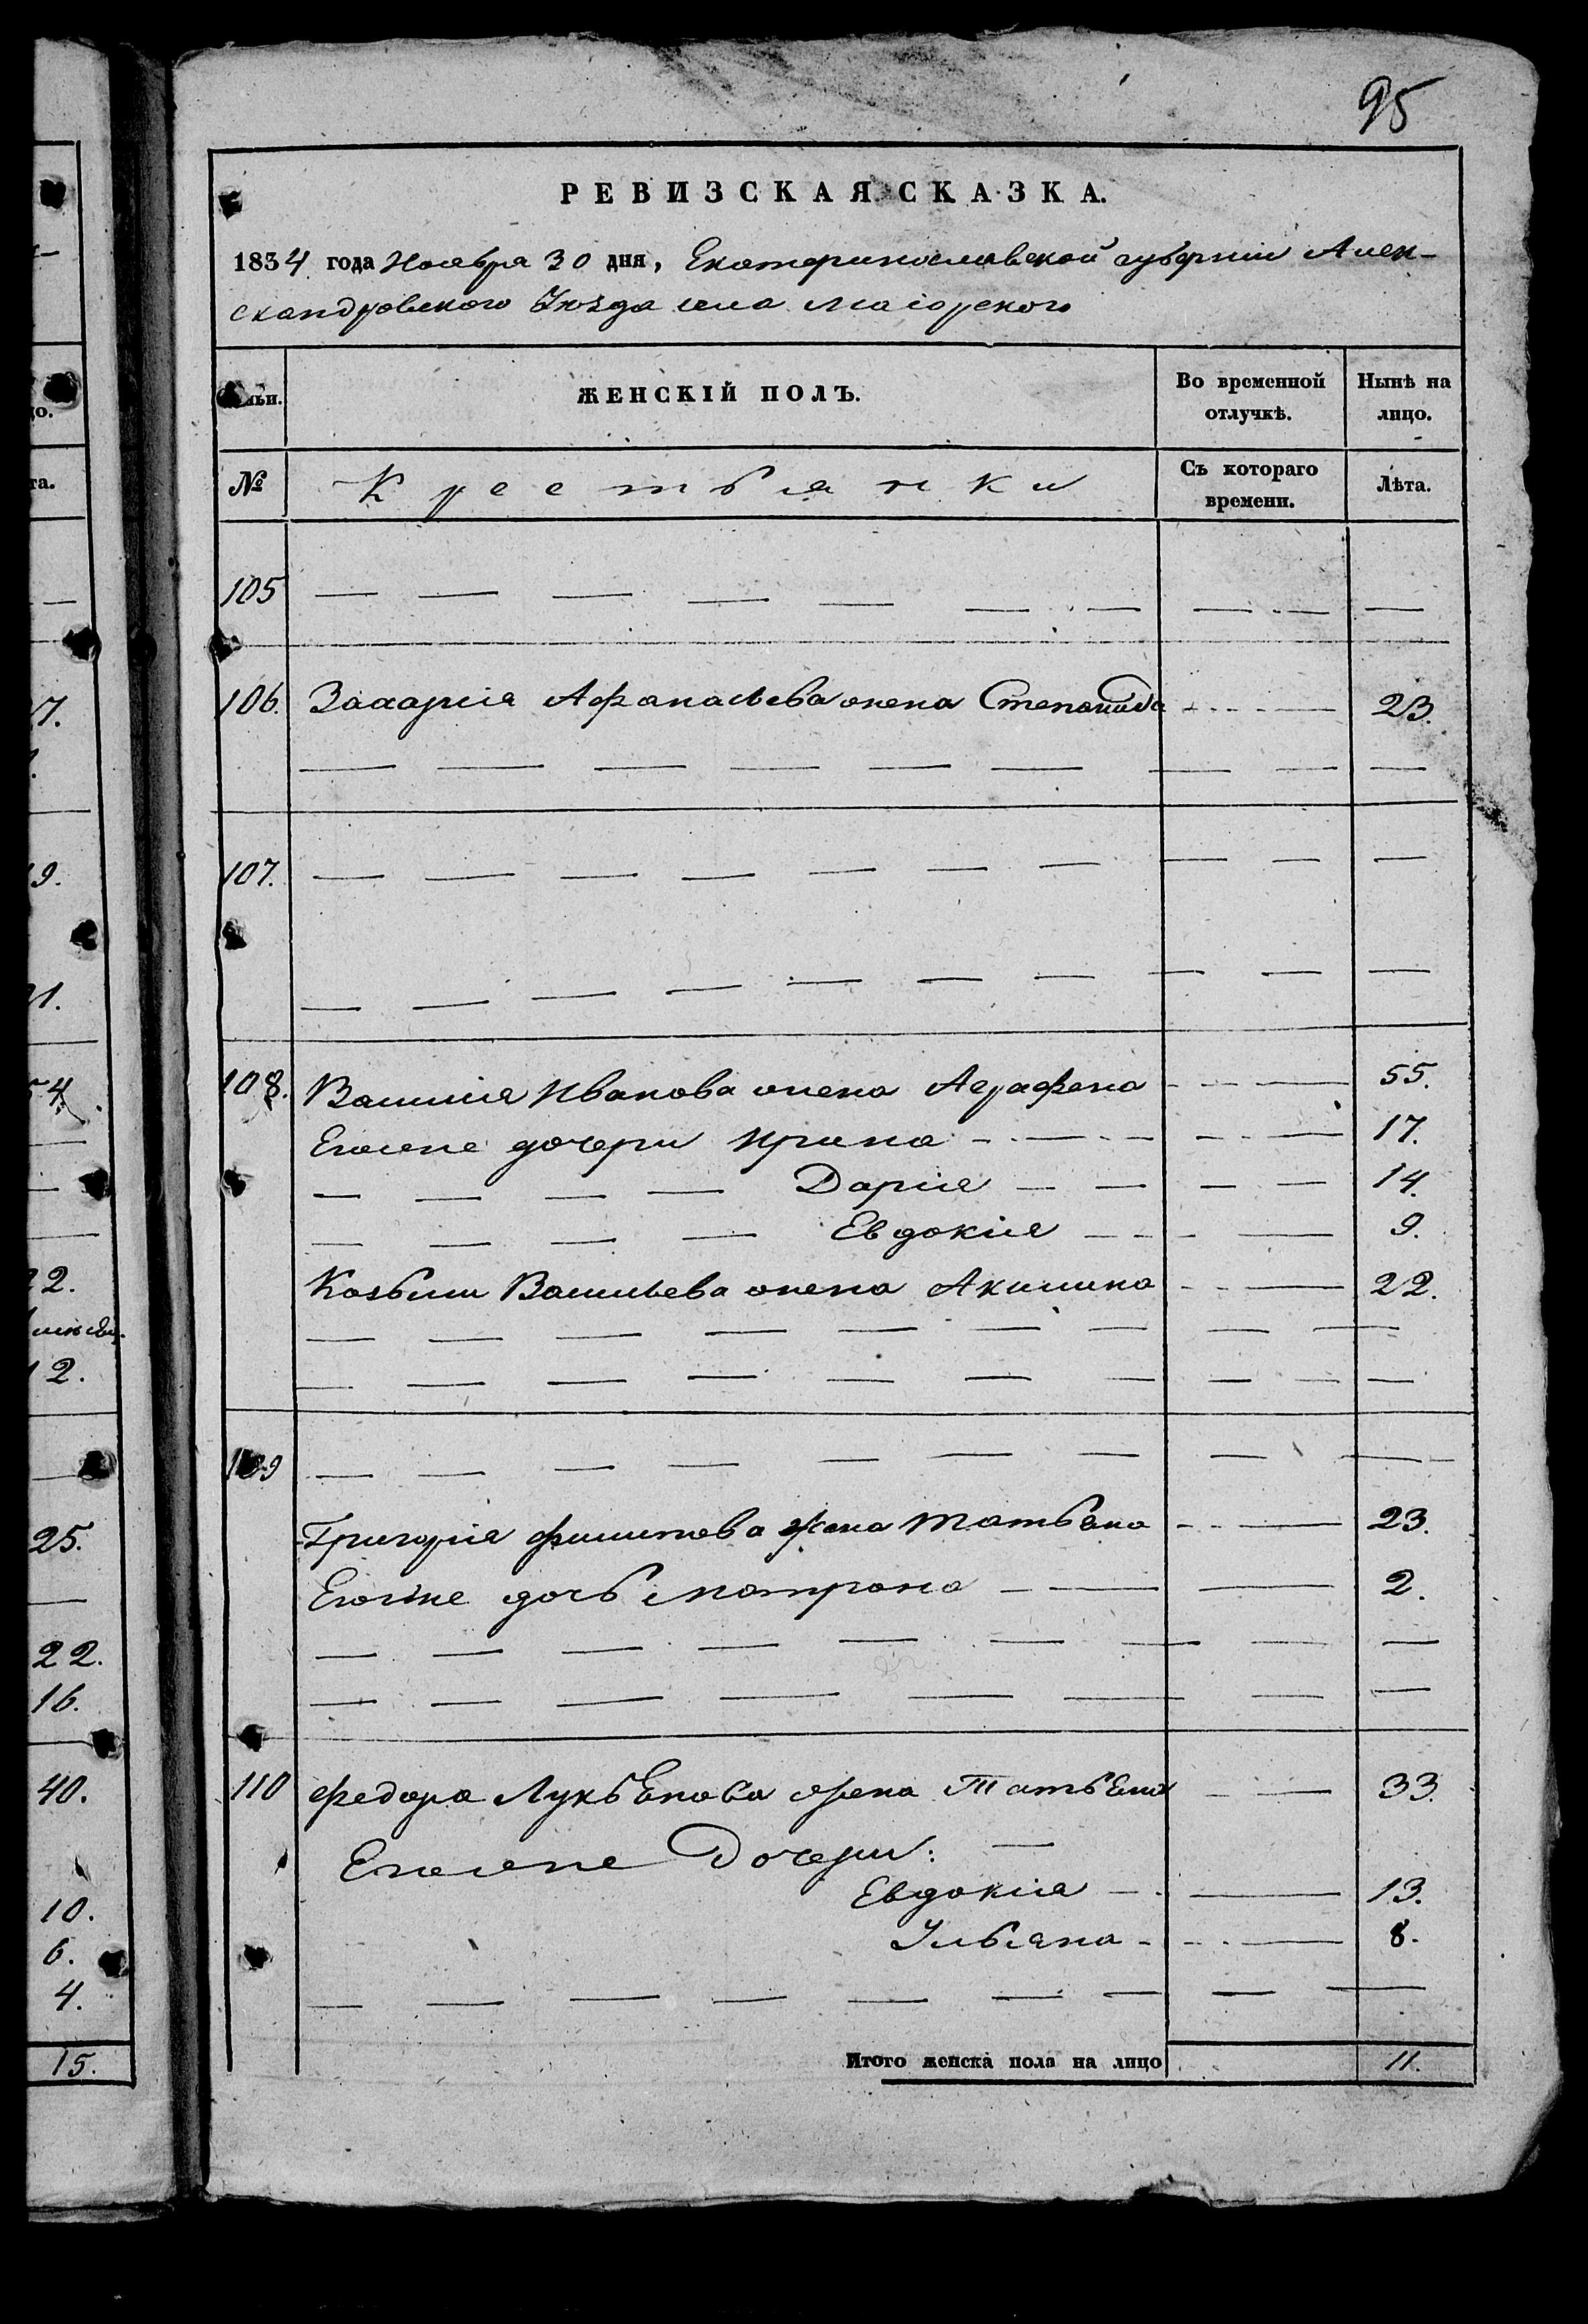 95
РЕВИЗСКАЯ СКАЗКА.
1834 года Ноября 30 дня, Екатеринославской губернии Алек-
сандровского Уѣзда села Маіорского
ЖЕНСКІЙ ПОЛЪ.
Во временной отлучкѣ.
Нынѣ на лицо.
№
Крестьянки
Съ котораго времени.
Лѣта.
105
106. Захарія Афанасьева жена Степанида 23.
107.
108. Василія Иванова жена Аграфена 55.
Егожене дочери Ирина 17.
Дарія 14.
Евдокія 9.
Козьмы Васильева жена Акилина 22.
109
Григорія Филипова жена Татьяна 23.
Егоже дочь Матрона 2.
110 Федора Лукьянова жена Татьяна 33.
Егожене Дочери:
Евдокія 13.
Ульяна 8.
Итого женска пола на лицо 11.
17.
19.
54.
22.
12.
25.
22.
16.
40.
10.
6.
4.
15.